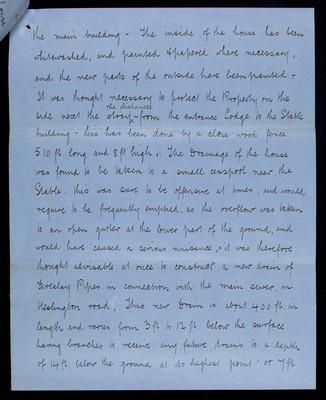 the main building – The inside of the house has been
whitewashed, and painted & papered where necessary,
and the new parts of the outside have been painted –
It was thought necessary to protect the Property on the
the distance
side next the – from the entrance Lodge to the Stable
building – this has been done by a close wood fence
510 ft. long and 8 ft high. The Drainage of the house
was found to be taken to a small cesspool near the
Stable. this was sure to be offensive at times, and would
require to be frequently emptied, as the overflow was taken
to an open gutter at the lower part of the ground, and
would have caused a serious nuisance, it was therefore
thought advisable at once to construct a new drain of
Fireclay Pipes in connection with the main sewer, in
Heslington road, This new Drain is about 400 ft. in
length and varies from 3 ft to 12 ft below the surface
having branches to receive any future drains to a depth
of 14 ft below the ground at its highest point – or 7 ft